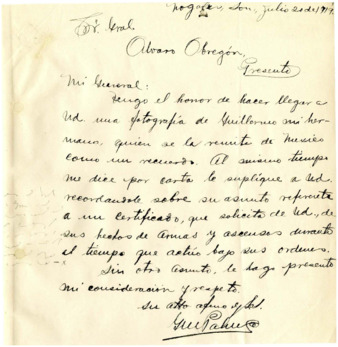 Nogales, Son, Julio 20 de 1919.
Sr. Gral.
Alvaro Obregón,
Presente
Mi General:
Tengo el honor de hacer llegar a
Ud. una fotografía de Guillermo mi her-
mano, quien se la remite de Mexico
como un recuerdo. Al mismo tiempo
me dice por carta le suplique a Ud.
recordandole sobre su asunto referente
a un certificado, que solicita de Ud., de
sus hechos de armas y ascensos durante
el tiempo que actuó bajo sus ordenes.
Sin otro asunto, le hago presente
mi consideracion y respeto.
Su atto afmo y